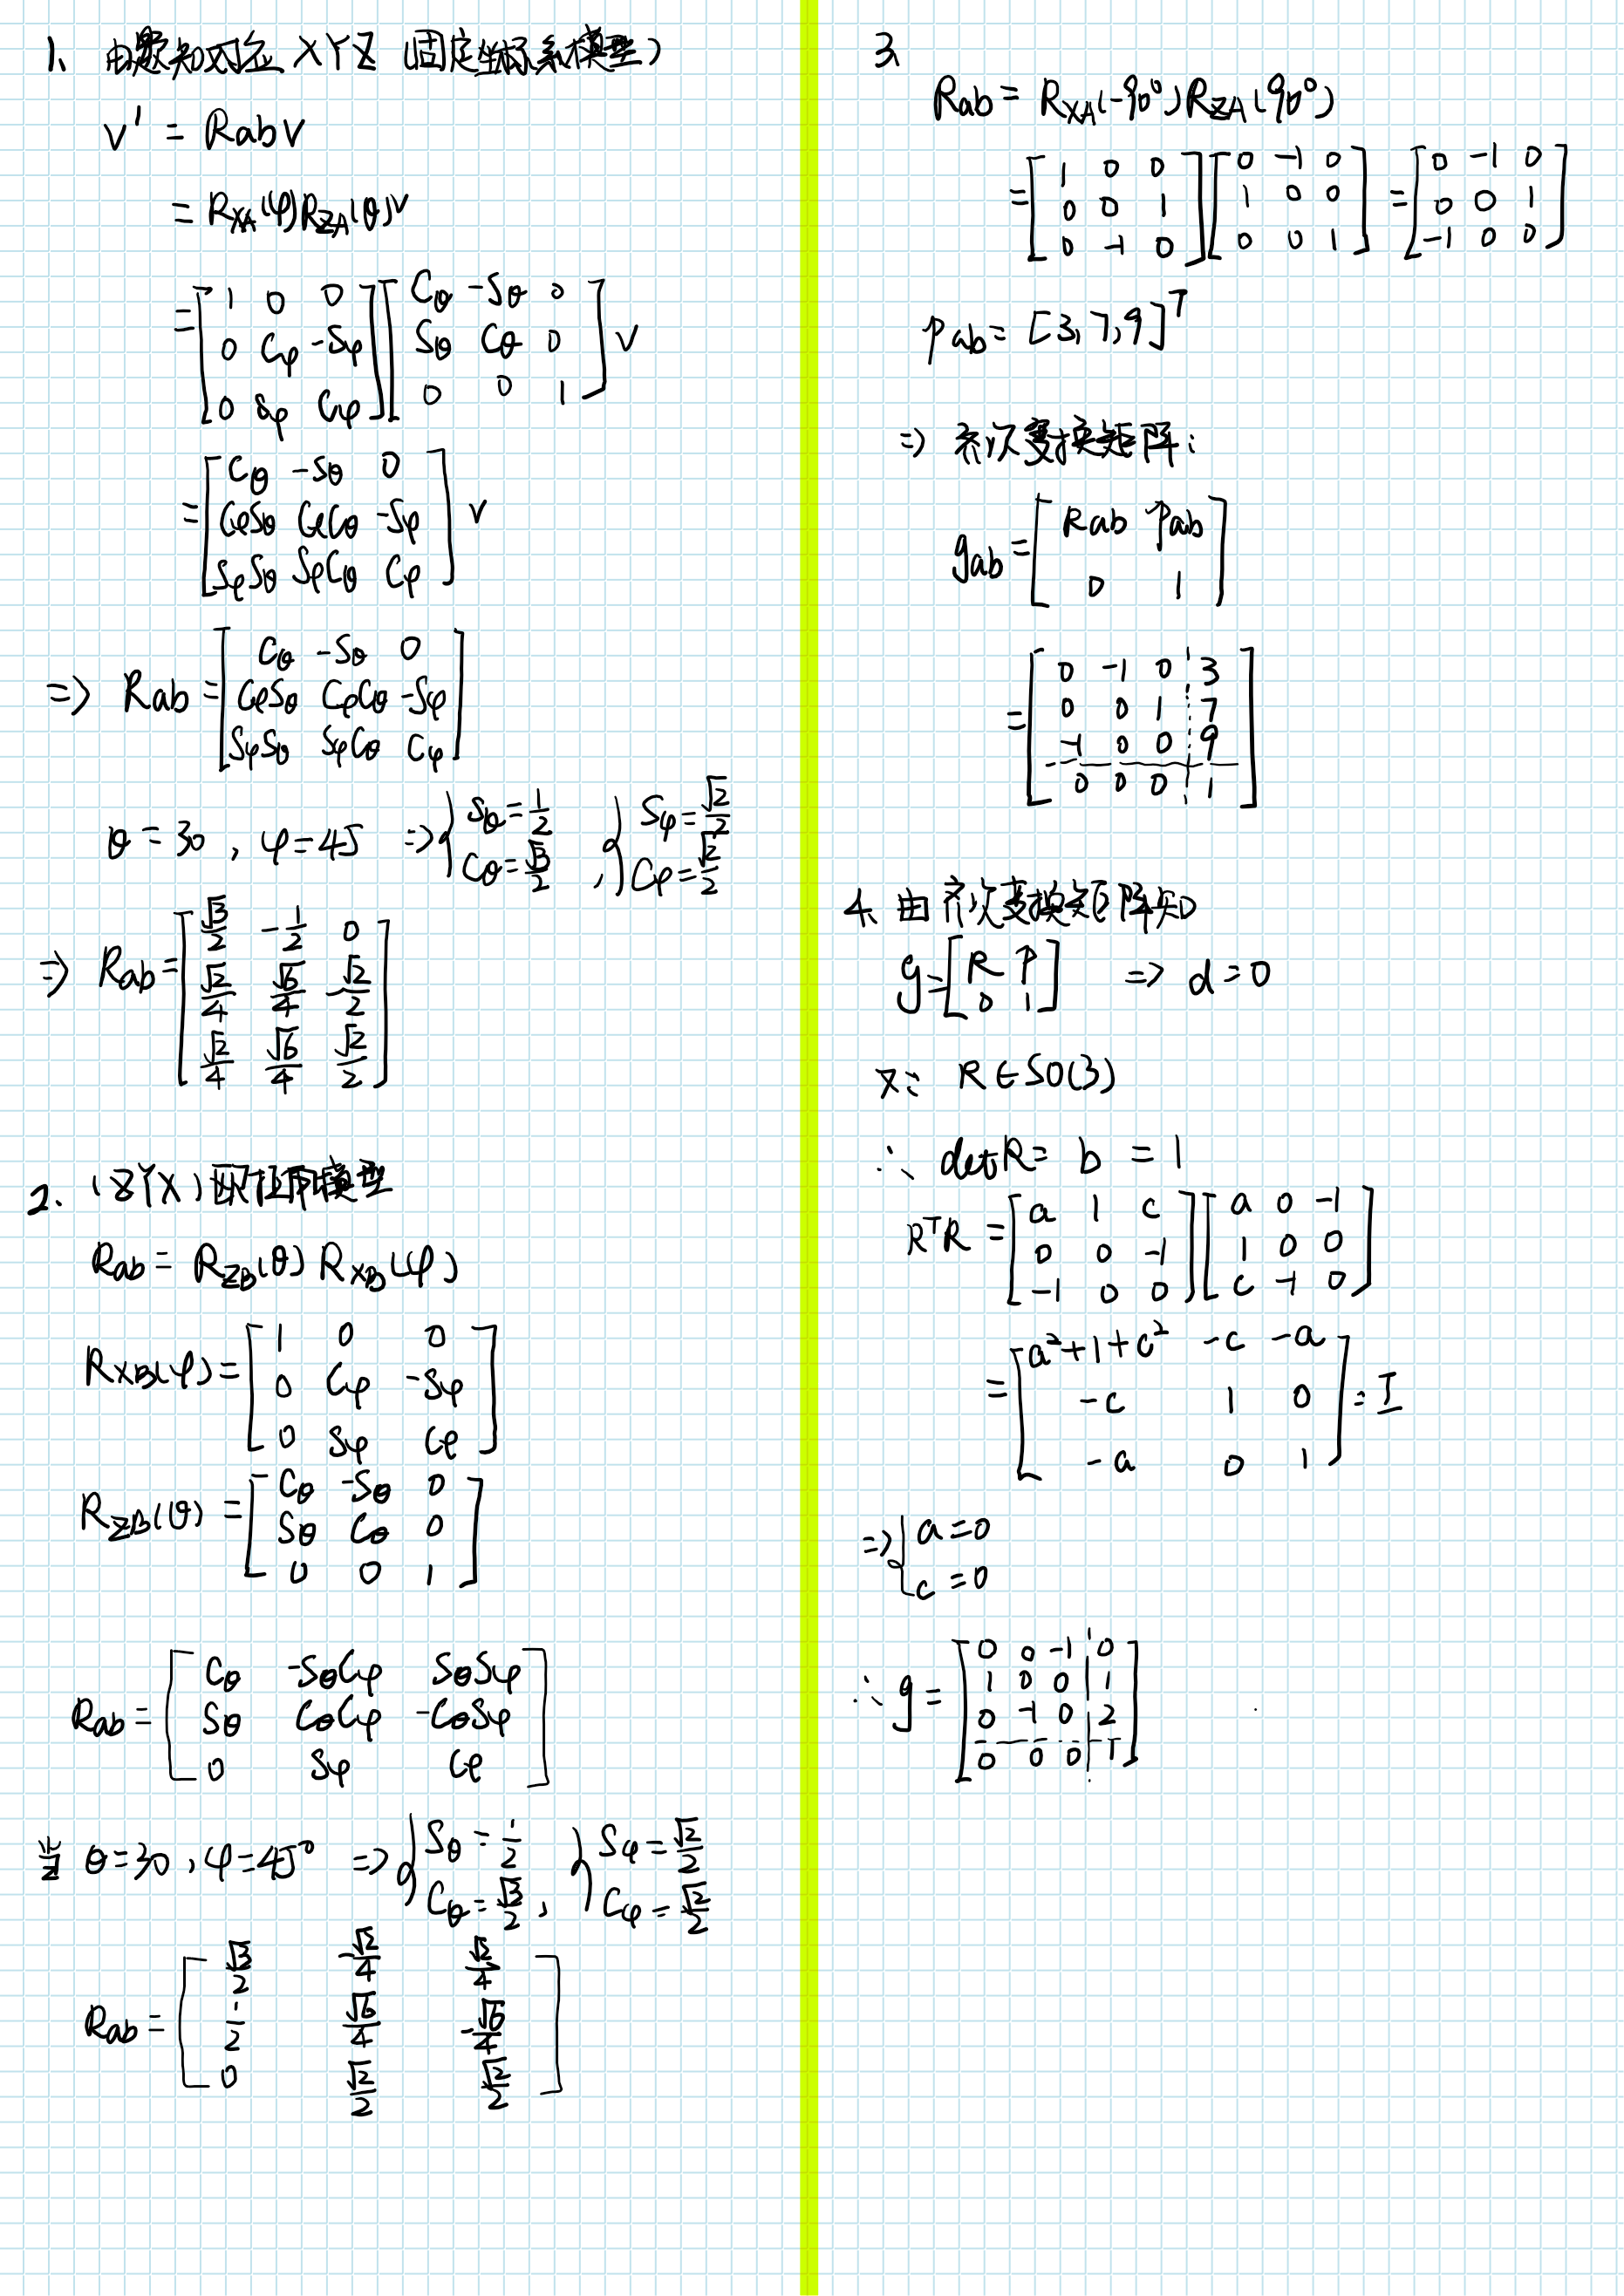 1、由题知对应 XYZ (固定坐标系模型)
v' = Rab v
= R_XA(φ) R_ZA(θ) v
= [1 0 0; 0 Cφ -Sφ; 0 Sφ Cφ] [Cθ -Sθ 0; Sθ Cθ 0; 0 0 1] v
= [Cθ -Sθ 0; CφSθ CφCθ -Sφ; SφSθ SφCθ Cφ] v
=> Rab = [Cθ -Sθ 0; CφSθ CφCθ -Sφ; SφSθ SφCθ Cφ]
θ = 30, φ = 45 => { Sθ = 1/2, Cθ = √3/2 , { Sφ = √2/2, Cφ = √2/2
=> Rab = [√3/2 -1/2 0; √2/4 √6/4 -√2/2; √2/4 √6/4 √2/2]
2、(ZYX) 欧拉角模型
Rab = R_ZB(θ) R_XB(φ)
R_XB(φ) = [1 0 0; 0 Cφ -Sφ; 0 Sφ Cφ]
R_ZB(θ) = [Cθ -Sθ 0; Sθ Cθ 0; 0 0 1]
Rab = [Cθ -SθCφ SθSφ; Sθ CθCφ -CθSφ; 0 Sφ Cφ]
当 θ = 30, φ = 45° => { Sθ = 1/2, Cθ = √3/2 , { Sφ = √2/2, Cφ = √2/2
Rab = [√3/2 -√2/4 √2/4; 1/2 √6/4 -√6/4; 0 √2/2 √2/2]
3、
Rab = R_XA(-90°) R_ZA(90°)
= [1 0 0; 0 0 1; 0 -1 0] [0 -1 0; 1 0 0; 0 0 1] = [0 -1 0; 0 0 1; -1 0 0]
Pab = [3, 7, 9]^T
=> 齐次变换矩阵:
gab = [Rab Pab; 0 1]
= [0 -1 0 3; 0 0 1 7; -1 0 0 9; 0 0 0 1]
4、由齐次变换矩阵知
g = [R P; 0 1] => d = 0
又∵ R ∈ SO(3)
∴ detR = b = 1
R^T R = [a 1 c; 0 0 -1; -1 0 0] [a 0 -1; 1 0 0; c -1 0]
= [a²+1+c² -c -a; -c 1 0; -a 0 1] = I
=> { a = 0
c = 0
∴ g = [0 0 -1 0; 1 0 0 1; 0 -1 0 2; 0 0 0 1]